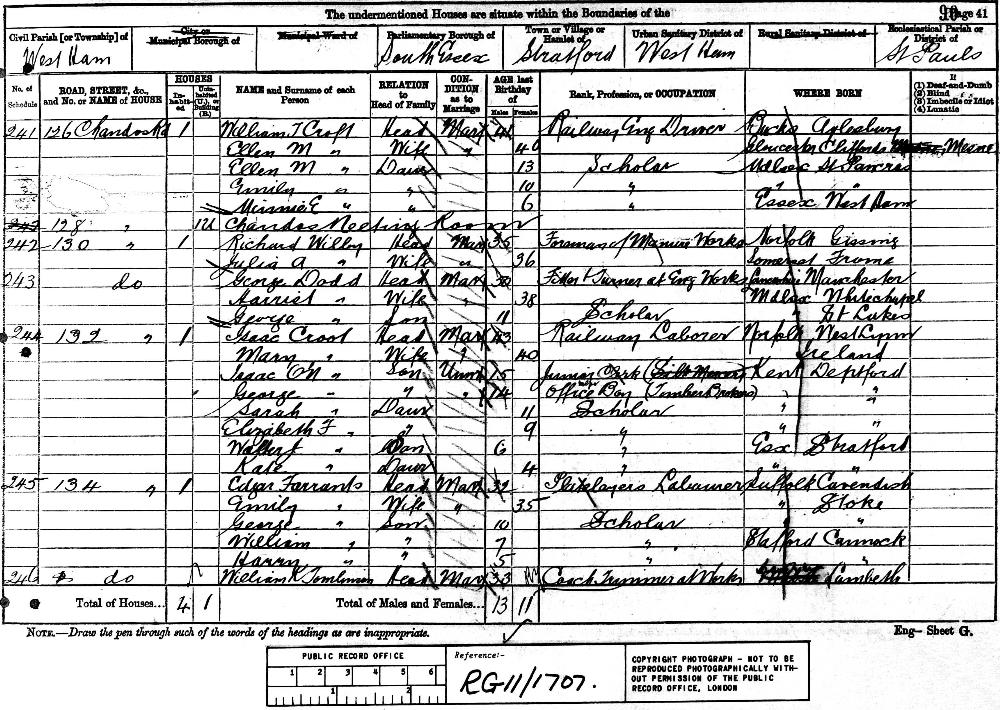 The undermentioned Houses are situate within the Boundaries of the
Page 41
Civil Parish [or Township] of West Ham
City or Municipal Borough of
Municipal Ward of
Parliamentary Borough of South Essex
Town or Village or Hamlet of Stratford
Urban Sanitary District of West Ham
Rural Sanitary District of
Ecclesiastical Parish or District of St Pauls
No. of Schedule
ROAD, STREET, &c., and No. or NAME of HOUSE
HOUSES
Inhabited
Uninhabited (U.), or Building (B.)
NAME and Surname of each Person
RELATION to Head of Family
CONDITION as to Marriage
AGE last Birthday of
Males
Females
Rank, Profession, or OCCUPATION
WHERE BORN
If
(1) Deaf-and-Dumb
(2) Blind
(3) Imbecile or Idiot
(4) Lunatic
241 126 Chandos Rd 1 William T Croft Head Mar 41 Railway Eng Driver Bucks Aylesbury
Ellen M " Wife " 40 Gloucester Cliffords Mesne
Ellen M " Daur 13 Scholar Mdlsex St Pancras
Emily " " 10 " "
Minnie E " " 6 " Essex West Ham
128 " 1U Chandos Meeting Room
242 130 " 1 Richard Wilby Head Mar 35 Foreman of Works Norfolk Gissing
Julia A " Wife " 36 Somerset Frome
243 do George Dodd Head Mar 30 Fitter & Turner at Eng Works Manchester
Harriet " Wife " 38 Mdlsex Whitechapel
George " Son 11 Scholar " St Lukes
244 132 " 1 Isaac Croot Head Mar 43 Railway Laborer Norfolk West Lynn
Mary " Wife " 40 Ireland
Isaac " Son Unm 15 Junior Clerk Kent Deptford
George " " " 14 Office Boy (Timber Brokers) " "
Sarah " Daur 11 Scholar " "
Elizabeth F " " 9 " " "
Walter " Son 6 " Esx Stratford
Kate " Daur 4 " " "
245 134 " 1 Edgar Farrants Head Mar 32 Platelayers Labourer Suffolk Cavendish
Emily " Wife " 35 " Stoke
George " Son 10 Scholar " "
William " " 7 " Stafford Cannock
Harry " " 5 " "
246 do William Tomlinson Head Mar 33 Coach Trimmer at Works Lambeth
Total of Houses... 4 1
Total of Males and Females... 13 11
NOTE.—Draw the pen through such of the words of the headings as are inappropriate.
Eng— Sheet G.
PUBLIC RECORD OFFICE
1 2 3 4 5 6
1 2
Reference:-
RG11/1707.
COPYRIGHT PHOTOGRAPH - NOT TO BE
REPRODUCED PHOTOGRAPHICALLY WITH-
OUT PERMISSION OF THE PUBLIC
RECORD OFFICE, LONDON